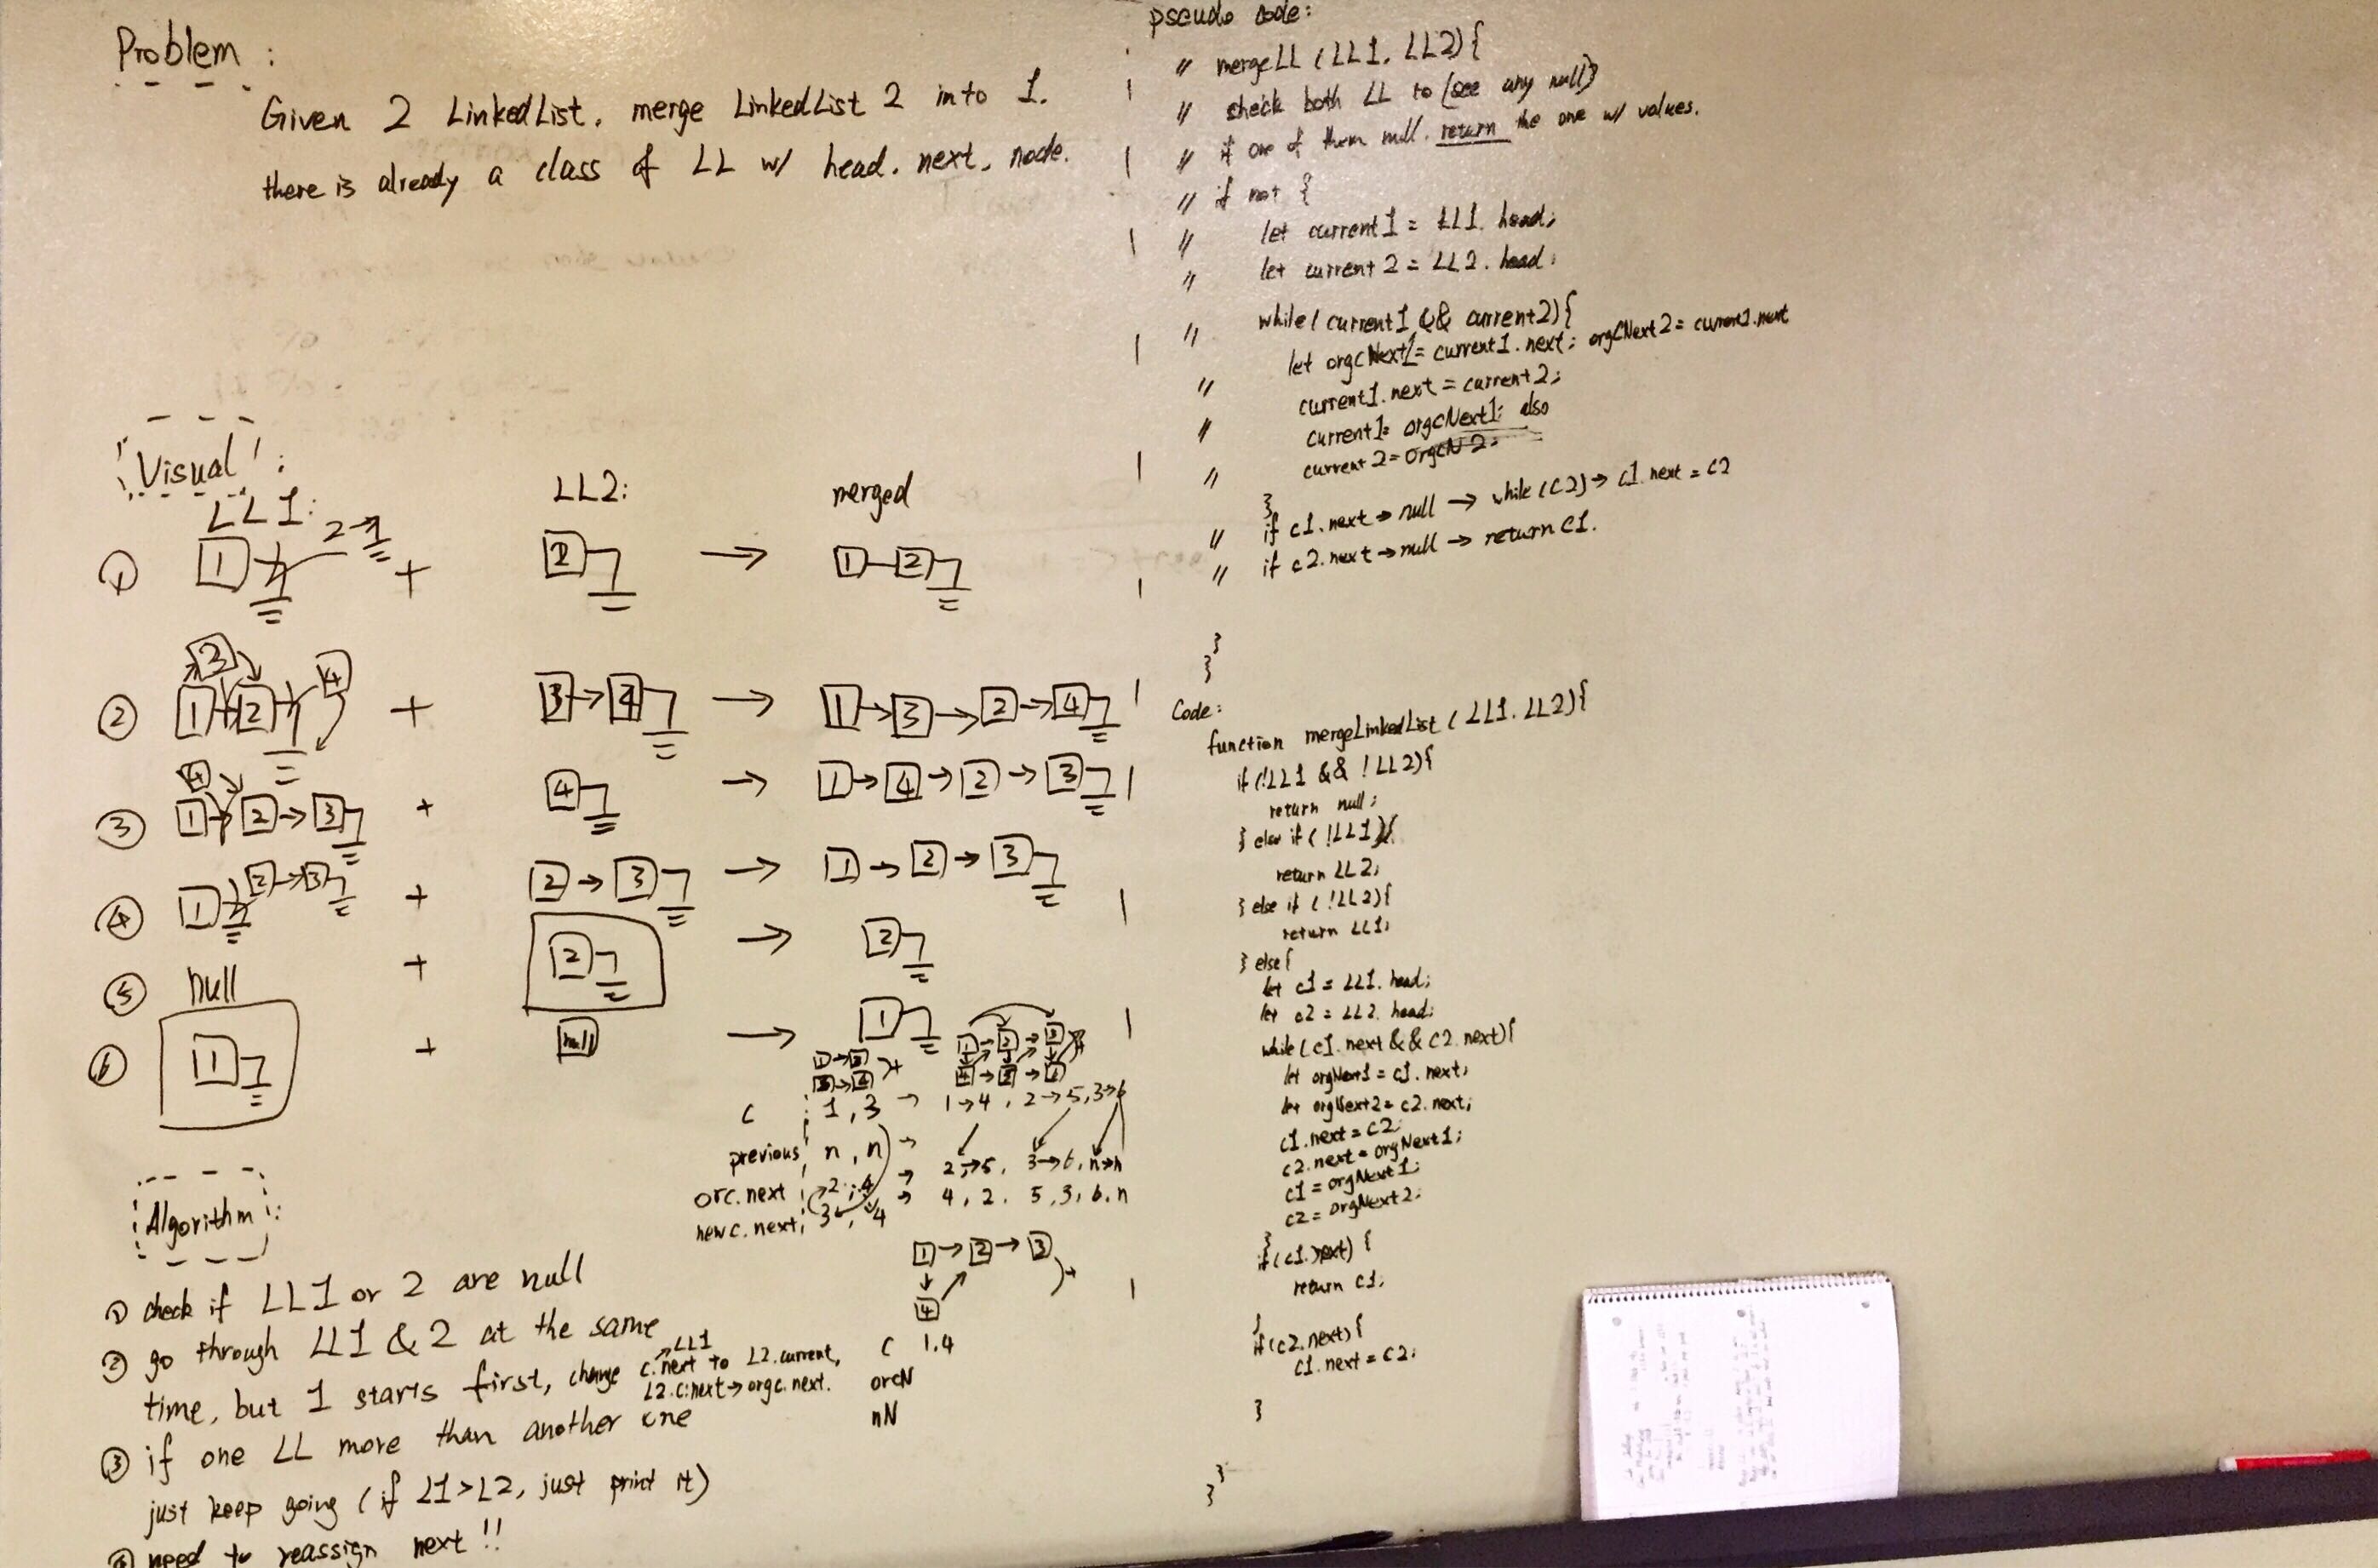 Problem :
Given 2 LinkedList, merge LinkedList 2 into 1.
there is already a class of LL w/ head, next, node.
Visual :
LL1: LL2: merged
① 1 2 + 2 → 1 2
② 1 3 2 4 + 3 → 4 → 1 → 3 → 2 → 4
③ 4 1 → 2 → 3 + 4 → 1 → 4 → 2 → 3
④ 1 2 → 3 + 2 → 3 → 1 → 2 → 3
⑤ null + 2 → 2
⑥ 1 + null → 1
c : 1, 3 → 1→4, 2→5, 3→6
previous n, n → 2→5, 3→6, n→n
orc.next 2, 4 → 4, 2, 5, 3, 6, n
new c. next; 3, 4
1 → 2 → 3
4
c 1.4
orcN
nN
Algorithm :
① check if LL1 or 2 are null
② go through LL1 & 2 at the same
time, but 1 starts first, change c.next to L2.current,
LL1
L2.c.next → orgc.next.
③ if one LL more than another one
just keep going (if L1>L2, just print it)
④ need to reassign next!!
pseudo code:
// mergeLL (LL1, LL2){
// check both LL to (see any null)
// if one of them null. return the one w/ values.
// if not {
// let current1 = LL1. head;
// let current2 = LL2. head;
// while( current1 && current2){
let orgcNext1= current1.next; orgCNext2= current2.next
// current1.next = current2;
// current1= orgcNext1; also
// current2= orgcN2;
}
// if c1.next → null → while (c2) → c1.next = c2
// if c2.next → null → return c1.
}
}
Code:
function mergeLinkedList (LL1, LL2){
if (!LL1 && !LL2){
return null;
} else if ( !LL1 ){
return LL2;
} else if ( !LL2){
return LL1;
} else{
let c1 = LL1. head;
let c2 = LL2. head;
while (c1.next && c2.next){
let orgNext1 = c1.next;
let orgNext2 = c2.next;
c1.next = c2;
c2.next = orgNext1;
c1 = orgNext1;
c2 = orgNext2;
}
if (c1.next) {
return c1;
}
if (c2.next){
c1.next = c2;
}
}
}